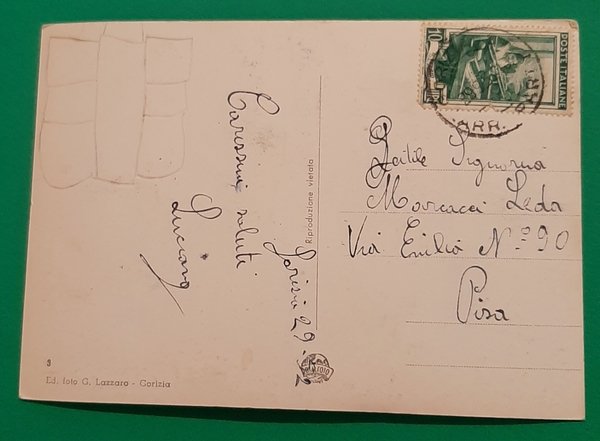 POSTE ITALIANE
10
ARR.
Gentile Signorina
Marcacci Leda
Via Emilia N.° 90
Pisa
Gorizia 29.
Carissimi saluti
Luciano
Riproduzione vietata
3
Ed. foto G. Lazzaro - Gorizia